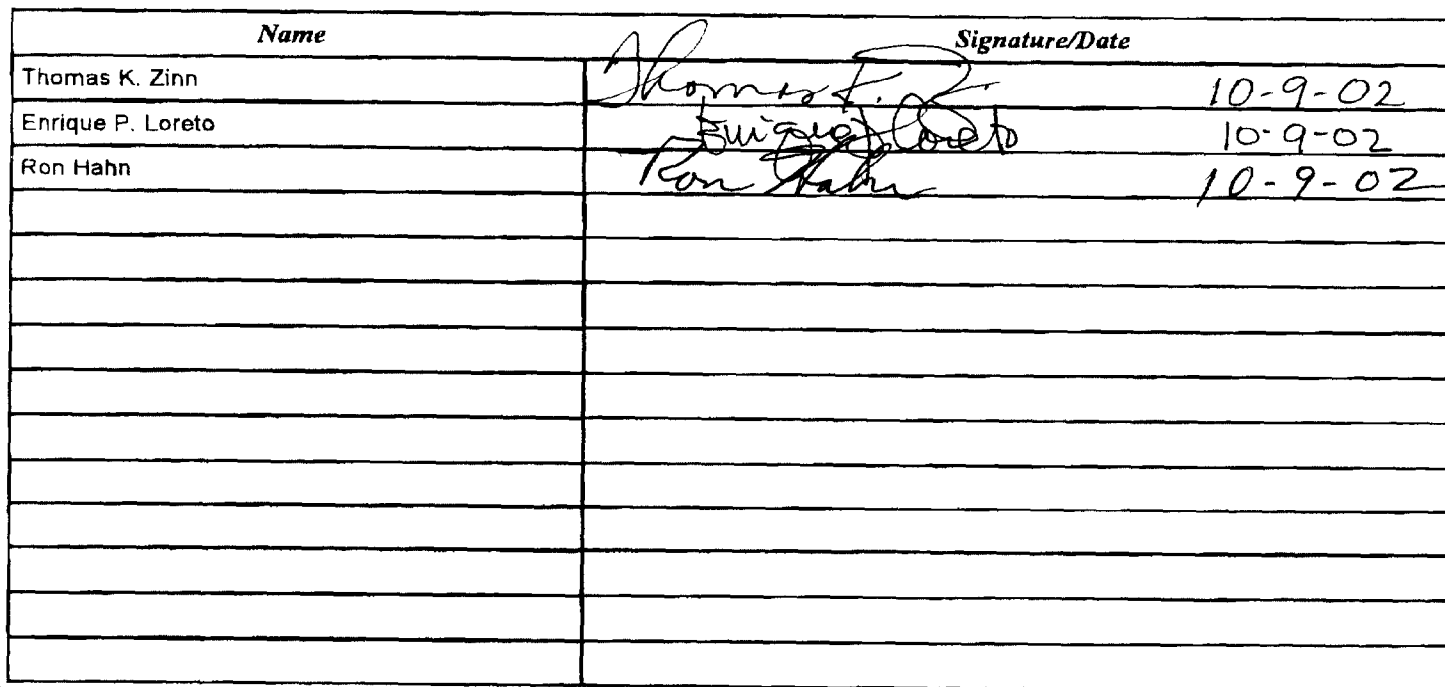 Name Signature/Date
Thomas K. Zinn Thomas K. Z. 10-9-02
Enrique P. Loreto Enrique P Loreto 10-9-02
Ron Hahn Ron Hahn 10-9-02